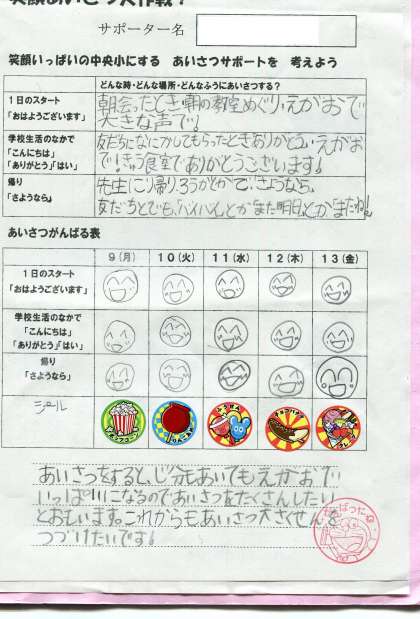 笑顔あいさつ大作戦!
サポーター名
笑顔いっぱいの中央小にする あいさつサポートを 考えよう
どんな時・どんな場所・どんなふうにあいさつする?
1日のスタート
「おはようございます」
朝会ったとき・朝の教室めぐり・えがおで
大きな声で!
学校生活のなかで
「こんにちは」
「ありがとう」「はい」
友だちになにかしてもらったときありがとう・えがお
で!きゅう食室でありがとうございます!
帰り
「さようなら」
先生にこり帰りろうかとかで、さようなら、
友だちとでも、「バイバイ」とか「また明日」とか「またね!」
あいさつがんばる表
9(月) 10(火) 11(水) 12(木) 13(金)
1日のスタート
「おはようございます」
学校生活のなかで
「こんにちは」
「ありがとう」「はい」
帰り
「さようなら」
シール
ポップコーン
りんごあめ
チョコバナナ
クレープ
あいさつをすると、じ分もあいてもえがおで
いっぱいになるのであいさつをたくさんしたい
とおもいます。これからもあいさつ大さくせんを
つづけたいです!
がんばったね